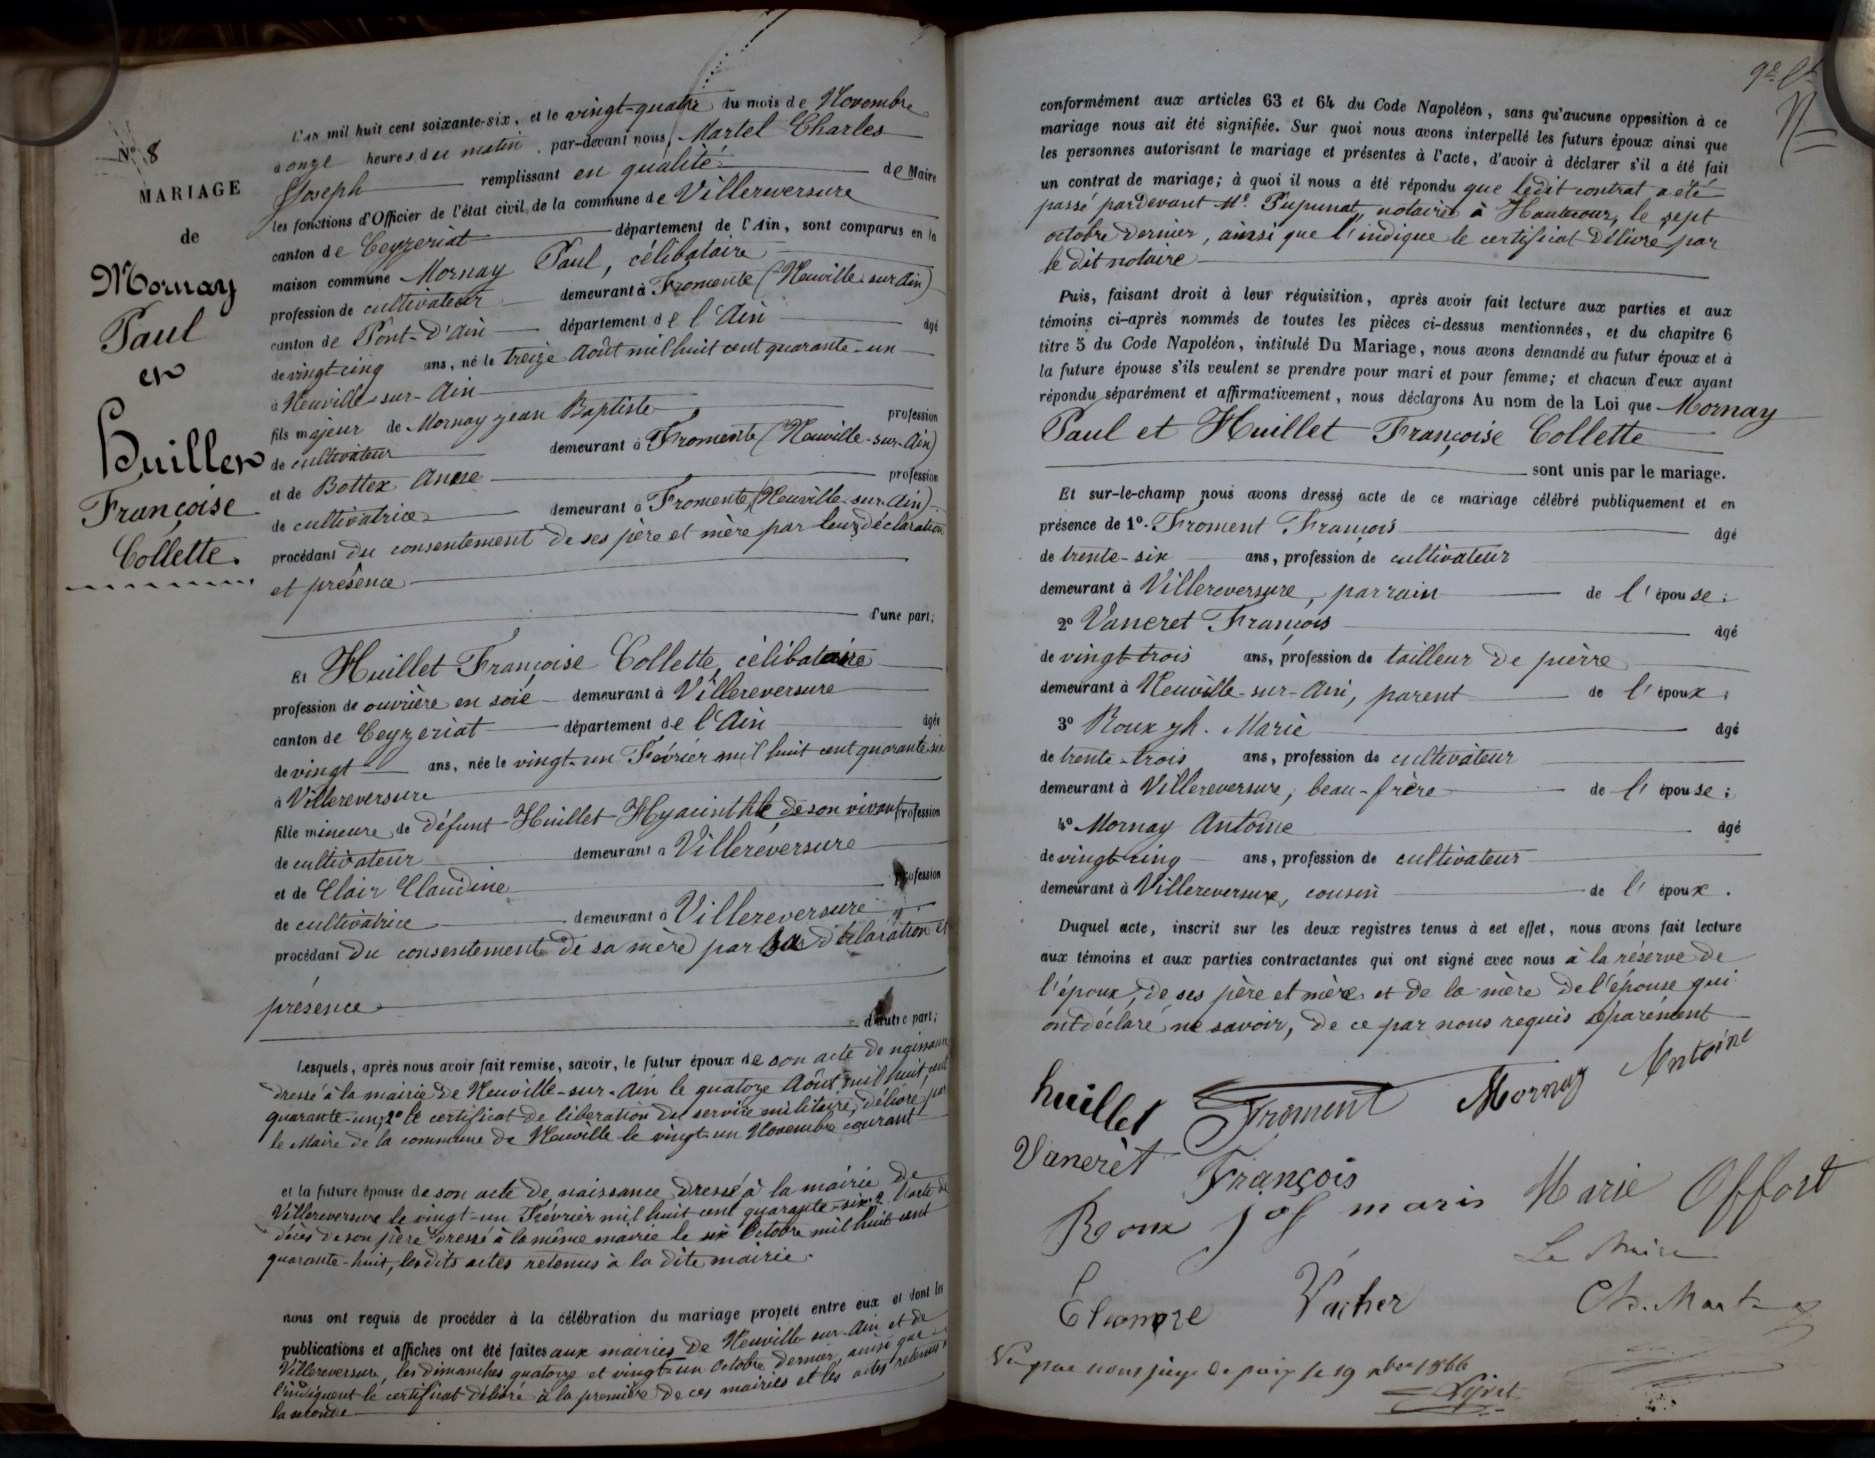 N° 8
MARIAGE
de
Mornay
Paul
et
Huillet
Françoise
Collette.
L'an mil huit cent soixante-six, et le vingt-quatre du mois de Novembre
à onze heures du matin, par-devant nous, Martel Charles
Joseph remplissant en qualité de Maire
les fonctions d'Officier de l'état civil de la commune de Villereversure
canton de Ceyzeriat département de l'Ain, sont comparus en la
maison commune Mornay Paul, célibataire
profession de cultivateur demeurant à Fromente (Neuville-sur-Ain)
canton de Pont-d'Ain département de l'Ain âgé
de vingt-cinq ans, né le treize Août mil huit cent quarante-un
à Neuville-sur-Ain
fils majeur de Mornay Jean Baptiste profession
de cultivateur demeurant à Fromente (Neuville-sur-Ain)
et de Bottex Anne profession
de cultivatrice demeurant à Fromente (Neuville-sur-Ain)
procédant du consentement de ses père et mère par leurs déclaration
et présence
d'une part;
Et Huillet Françoise Collette, célibataire
profession de ouvrière en soie demeurant à Villereversure
canton de Ceyzeriat département de l'Ain âgée
de vingt ans, née le vingt-un Février mil huit cent quarante-six
à Villereversure
fille mineure de défunt Huillet Hyacinthe de son vivant profession
de cultivateur demeurant à Villereversure
et de Clair Claudine profession
de cultivatrice demeurant à Villereversure
procédant du consentement de sa mère par sa déclaration et
présence
d'autre part;
Lesquels, après nous avoir fait remise, savoir, le futur époux de son acte de naissance
dressé à la mairie de Neuville-sur-Ain le quatorze Août mil huit cent
quarante-un, 2° le certificat de libération du service militaire, délivré par
le Maire de la commune de Neuville le vingt-un Novembre courant
et la future épouse de son acte de naissance dressé à la mairie de
Villereversure le vingt-un Février mil huit cent quarante-six, 2° l'acte de
décès de son père dressé à la même mairie le six Octobre mil huit cent
quarante-huit, lesdits actes retenus à la dite mairie.
nous ont requis de procéder à la célébration du mariage projeté entre eux et dont les
publications et affiches ont été faites aux mairies de Neuville-sur-Ain et de
Villereversure, les dimanches quatorze et vingt-un Octobre dernier, ainsi que
l'indiquent le certificat délivré à la première de ces mairies et les actes retenus à
la seconde
conformément aux articles 63 et 64 du Code Napoléon, sans qu'aucune opposition à ce
mariage nous ait été signifiée. Sur quoi nous avons interpellé les futurs époux ainsi que
les personnes autorisant le mariage et présentes à l'acte, d'avoir à déclarer s'il a été fait
un contrat de mariage; à quoi il nous a été répondu que ledit contrat a été
passé pardevant Me Pupunat, notaire à Hautecour, le sept
octobre dernier, ainsi que l'indique le certificat délivré par
le dit notaire
Puis, faisant droit à leur réquisition, après avoir fait lecture aux parties et aux
témoins ci-après nommés de toutes les pièces ci-dessus mentionnées, et du chapitre 6
titre 5 du Code Napoléon, intitulé Du Mariage, nous avons demandé au futur époux et à
la future épouse s'ils veulent se prendre pour mari et pour femme; et chacun d'eux ayant
répondu séparément et affirmativement, nous déclarons Au nom de la Loi que Mornay
Paul et Huillet Françoise Collette
sont unis par le mariage.
Et sur-le-champ nous avons dressé acte de ce mariage célébré publiquement et en
présence de 1°. Froment François âgé
de trente-six ans, profession de cultivateur
demeurant à Villereversure, parrain de l'épouse;
2° Vaneret François âgé
de vingt-trois ans, profession de tailleur de pierre
demeurant à Neuville-sur-Ain, parent de l'époux;
3° Roux Jh. Marie âgé
de trente-trois ans, profession de cultivateur
demeurant à Villereversure, beau-frère de l'épouse;
4° Mornay Antoine âgé
de vingt-cinq ans, profession de cultivateur
demeurant à Villereversure, cousin de l'époux.
Duquel acte, inscrit sur les deux registres tenus à cet effet, nous avons fait lecture
aux témoins et aux parties contractantes qui ont signé avec nous à la réserve de
l'époux, de ses père et mère et de la mère de l'épouse qui
ont déclaré ne savoir, de ce par nous requis séparément
huillet Froment Mornay Antoine
Vanerèt François
Roux jos maris Marie Offort
Le Maire
Eleonore Vacher Ch. Martel
Vu par nous juge de paix le 19 xbre 1866